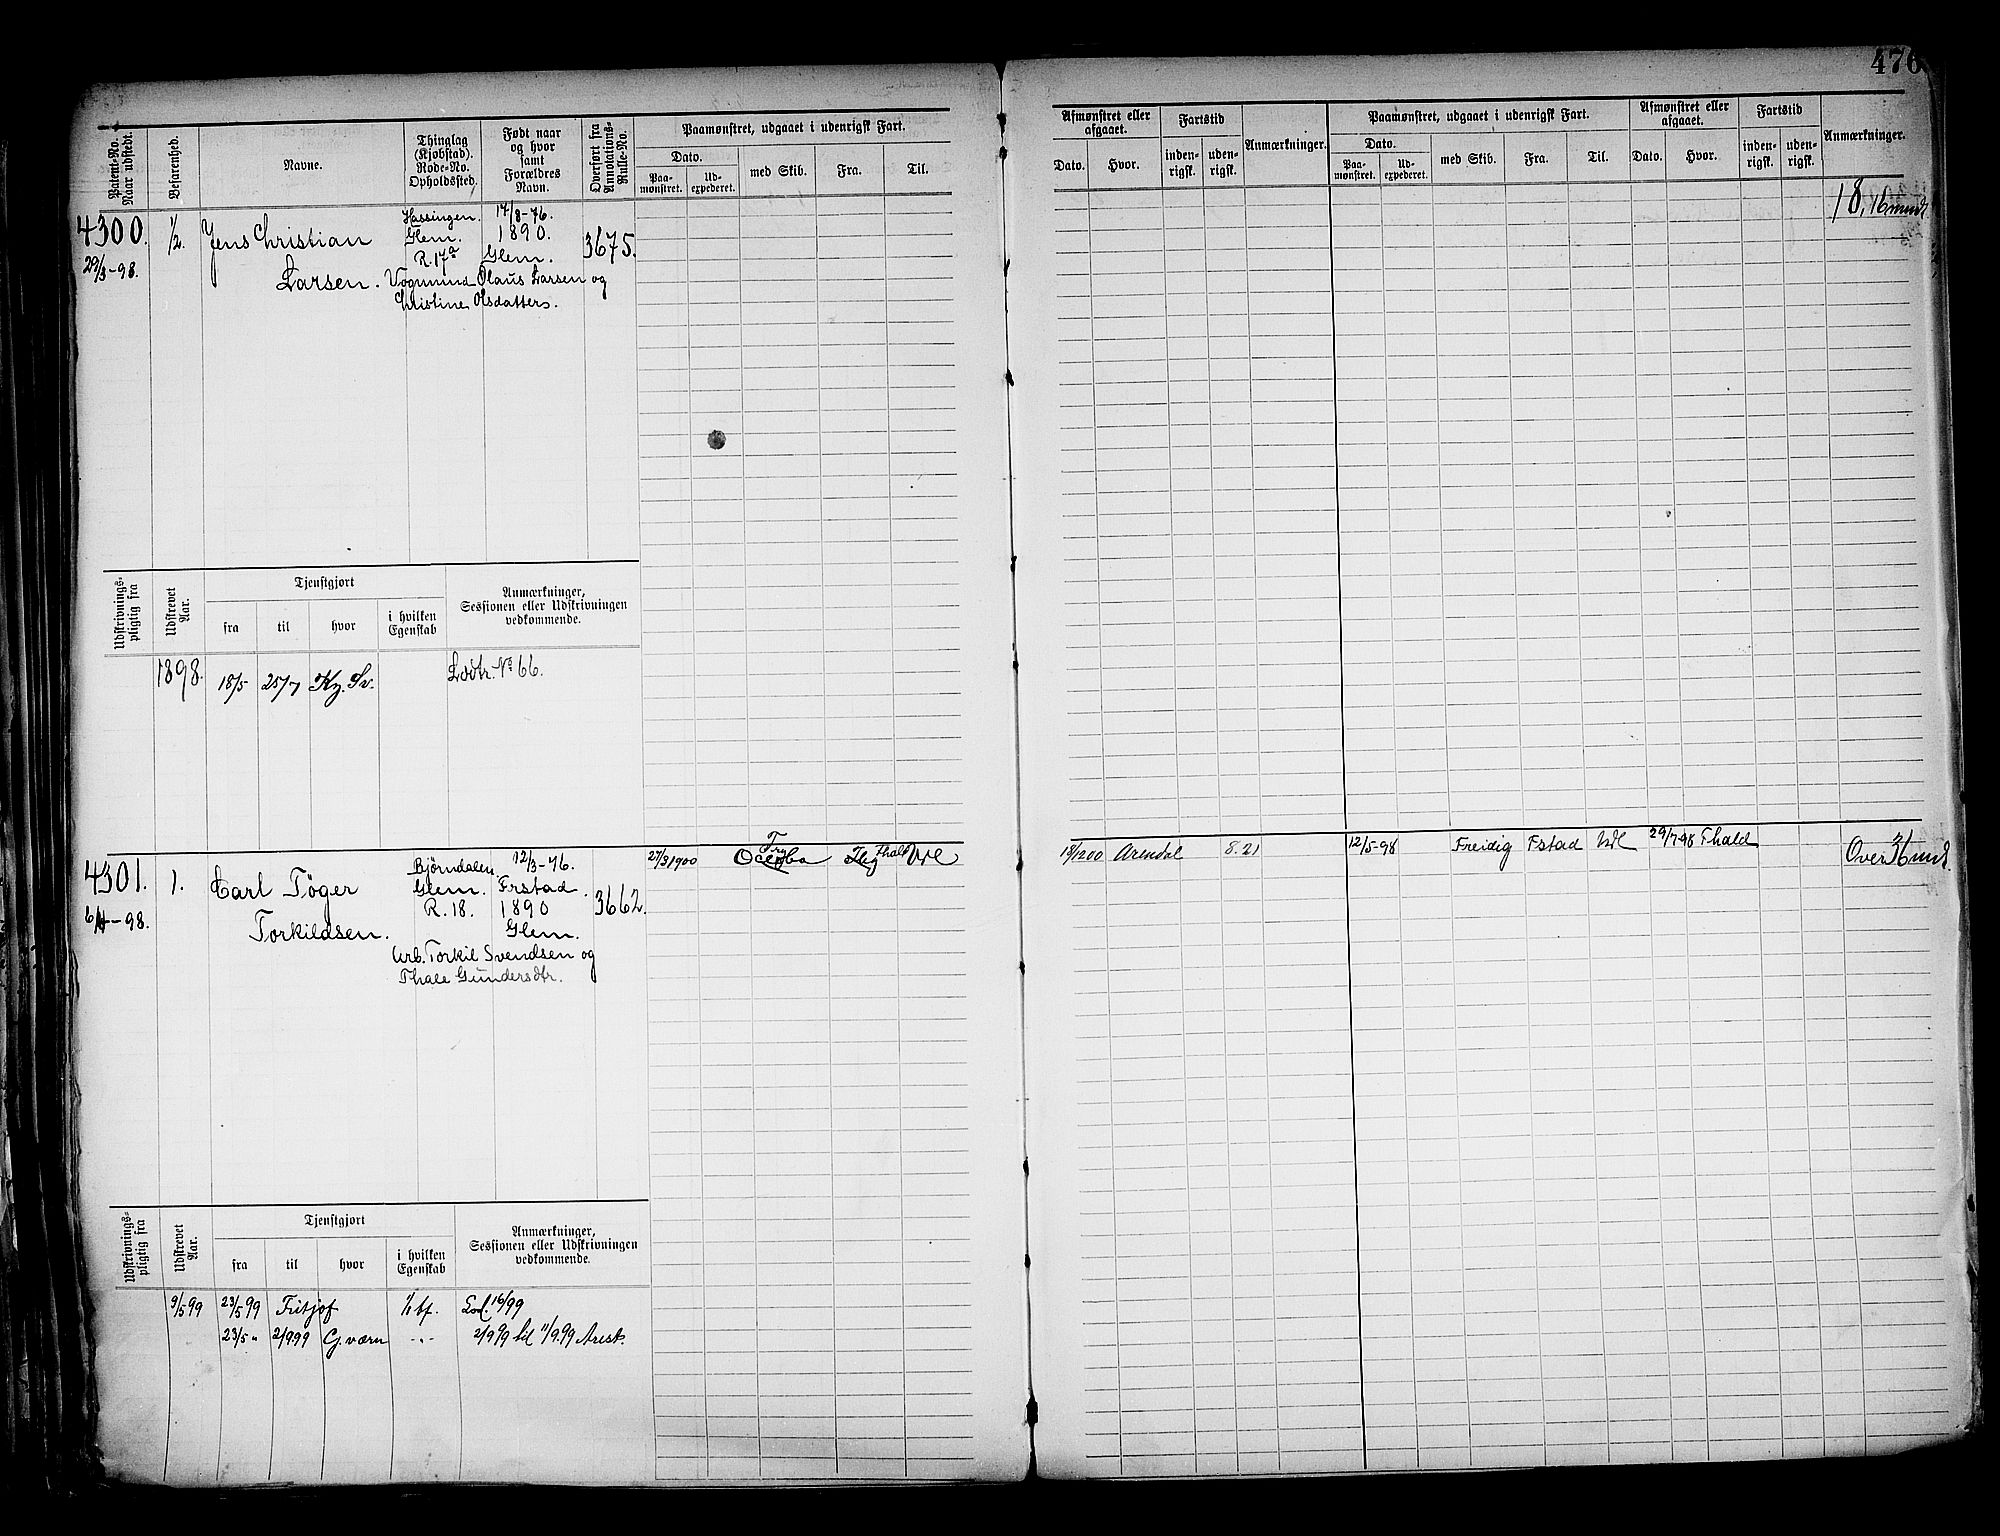 476
Patent-No.
Naar udstedt.
Befarenhed.
Navne.
Thinglag
(Kjøbstad).
Rode-No.
Opholdssted.
Født naar
og hvor
samt
Forældres
Navn.
Overført fra
Annotations-
Rulle-No.
Paamønstret, udgaaet i udenrigsk Fart.
Dato.
Paa-
mønstret.
Ud-
expederet.
med Skib.
Fra.
Til.
Afmønstret eller
afgaaet.
Dato.
Hvor.
Fartstid
inden-
rigsk.
uden-
rigsk.
Anmærkninger.
Paamønstret, udgaaet i udenrigsk Fart.
Dato.
Paa-
mønstret.
Ud-
expederet.
med Skib.
Fra.
Til.
Afmønstret eller
afgaaet.
Dato.
Hvor.
Fartstid
inden-
rigsk.
uden-
rigsk.
Anmærkninger.
4300.
29/3-98.
1/2.
Jens Christian
Larsen.
Hassingen.
Glem.
R. 17a
17/8-76.
1890.
Glem.
3675.
Vognmand Olaus Larsen og
Christine Olsdatters.
18, 16 mndr
Udskrivnings-
pligtig fra
Udskrevet
Aar.
Tjenstgjort
fra
til
hvor
i hvilken
Egenskab
Anmærkninger,
Sessionen eller Udskrivningen
vedkommende.
1898.
18/5
25/7
Lodtr. No 66.
4301.
6/4-98.
1.
Carl Töger
Torkildsen.
Björndalen.
Glem.
R. 18.
12/3-76.
Frstad.
1890
Glem.
3662.
Arb. Torkil Svendsen og
Thale Gundersdtr.
27/3 1900
Fhald
18/1200
Arendal
8.21
12/5-98
Freidig
Fstad
29/7-98
Fhald
Over 36 mnd.
Udskrivnings-
pligtig fra
Udskrevet
Aar.
Tjenstgjort
fra
til
hvor
i hvilken
Egenskab
Anmærkninger,
Sessionen eller Udskrivningen
vedkommende.
9/5 99
23/5 99
Fritjof
Lod. 16/99
23/5 "
2/9 99
G. værn
2/9 99 til 11/9.99 Arest.